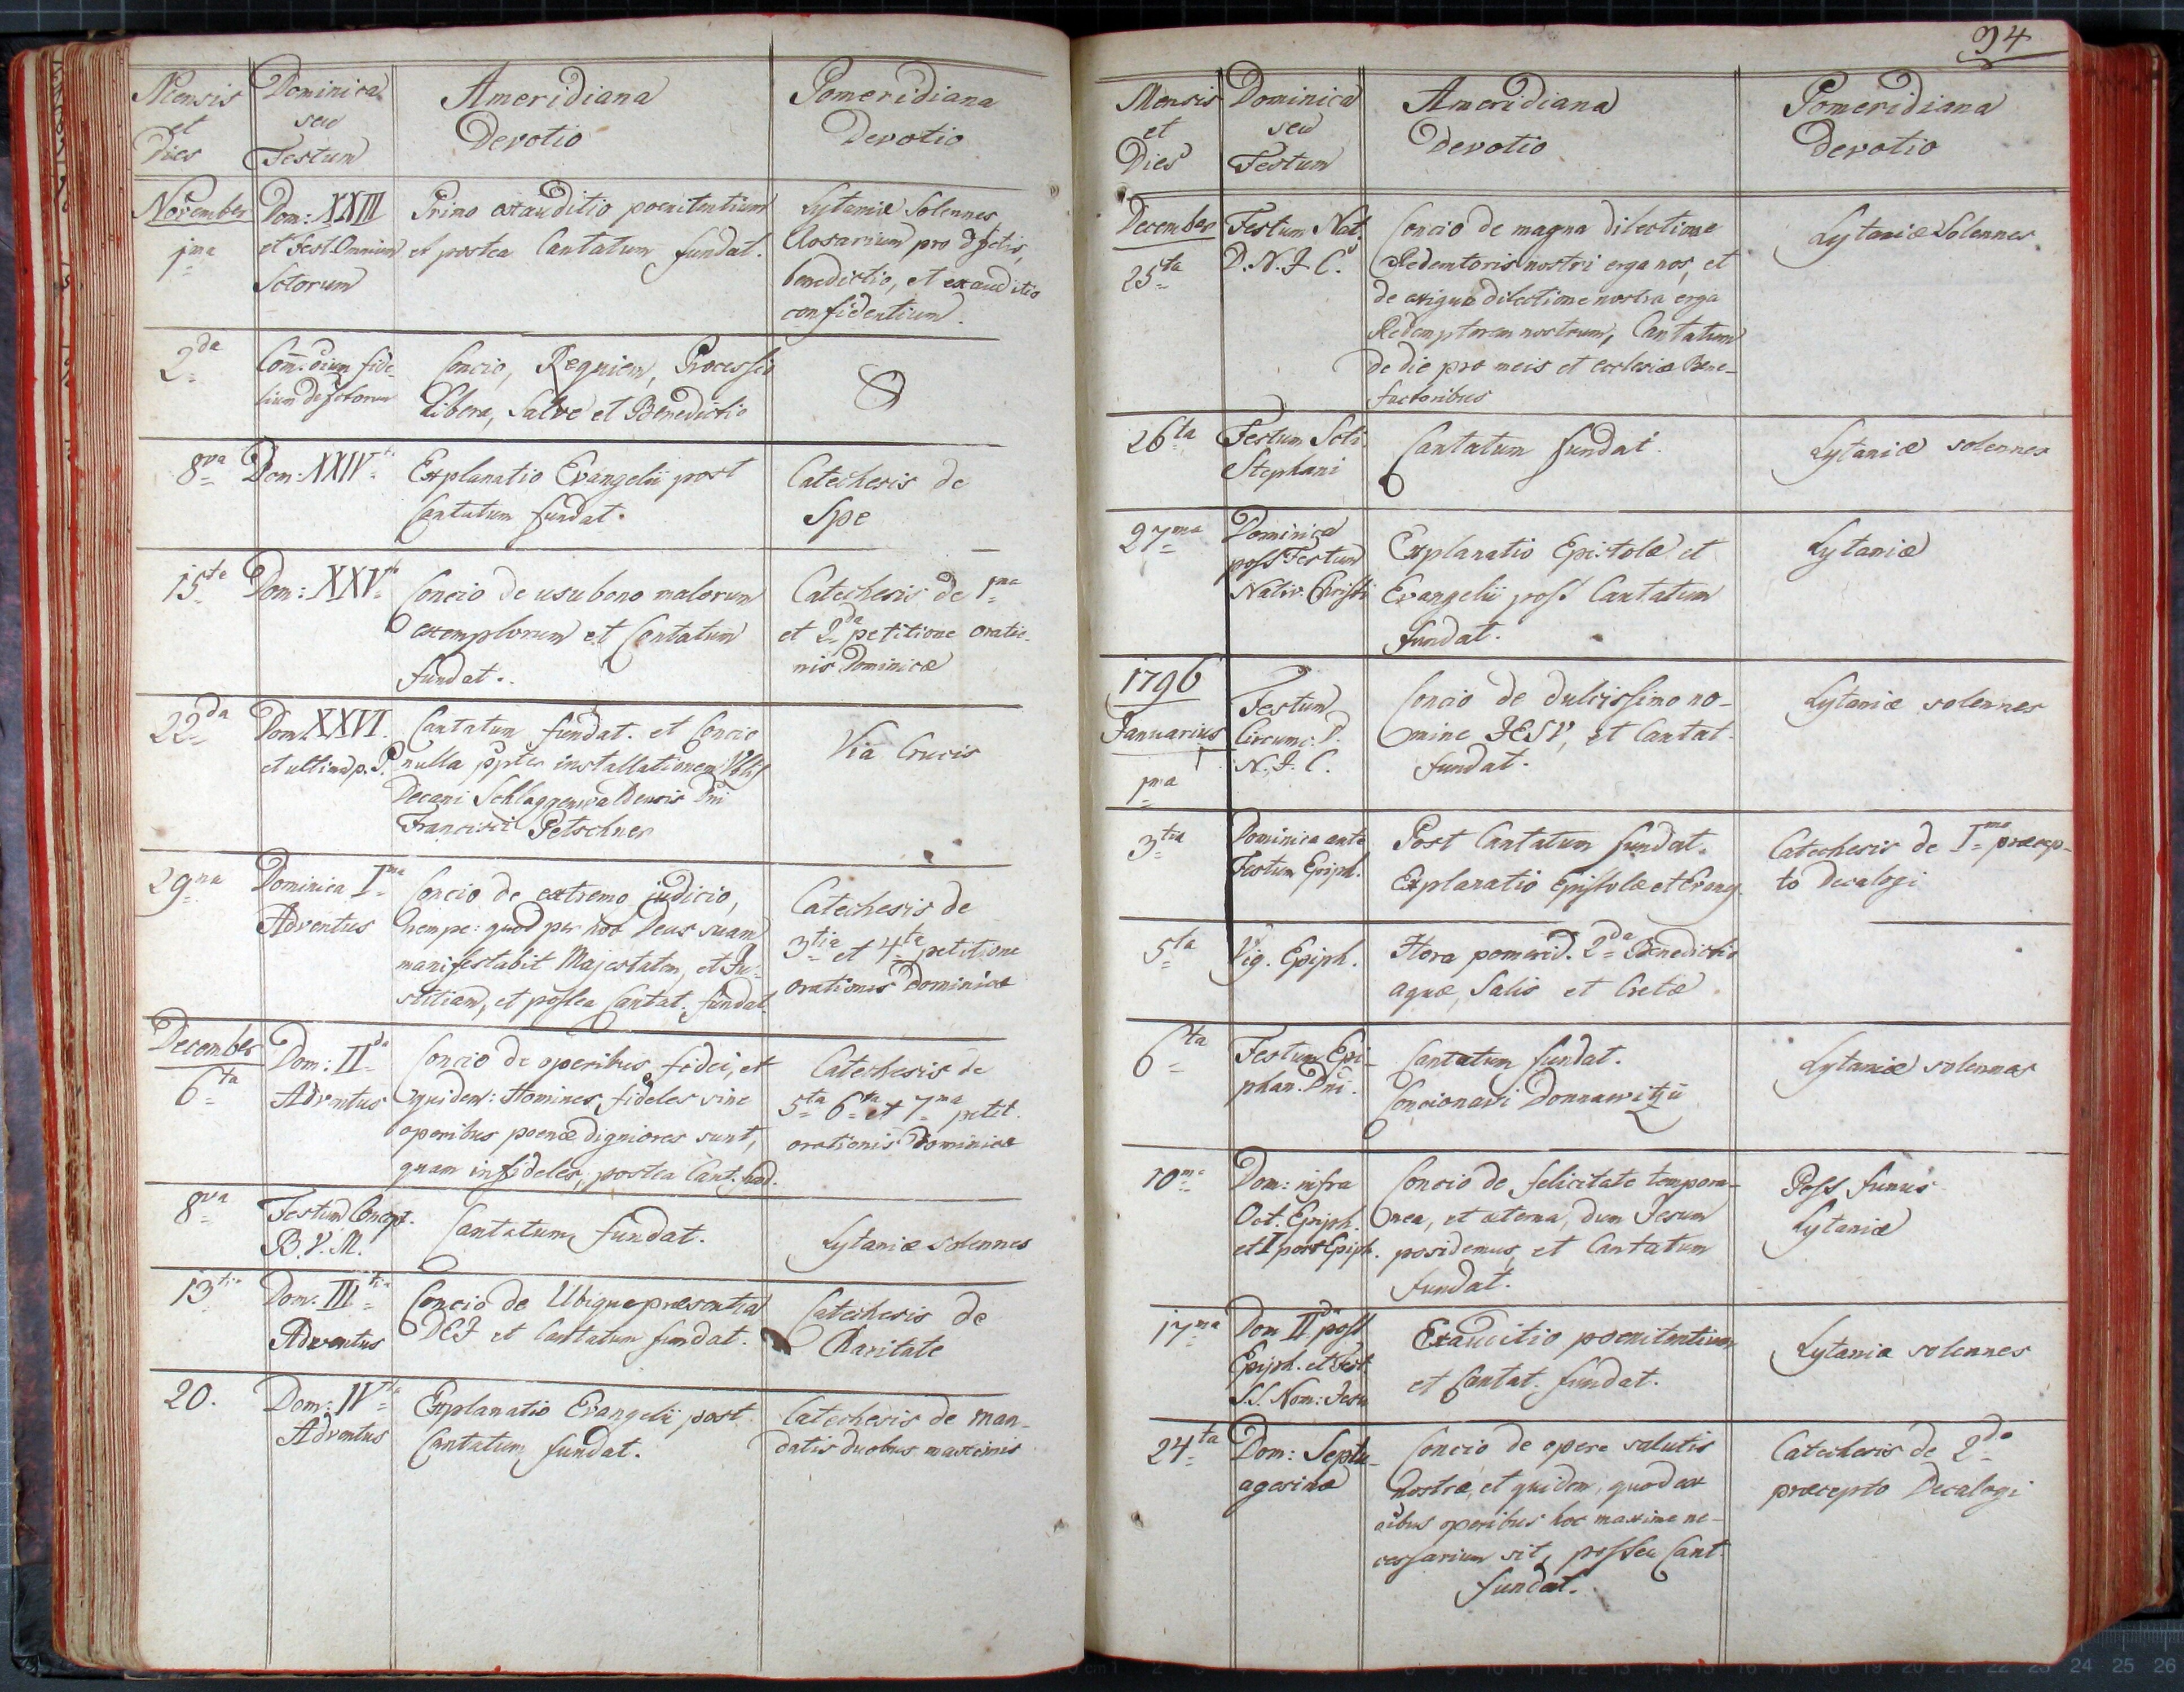 Mensis et Dies
Dominica seu Festum
Ameridiana Devotio
Pomeridiana Devotio
November
1ma
Dom: XXIII
et Fest. Omnium
Sctorum
Primo exauditio poenitentium
et postea Cantatum fundat.
Lytaniæ Solennes,
Rosarium pro dfctis,
benedictio, et exauditio
confidentium.
2da
Com̄. oium fide-
lium defctorum
Concio, Requiem, Processio
Libera, Salve et Benedictio
8va
Dom: XXIV
Explanatio Evangelii post
Cantatum fundat.
Catechesis de
Spe
15ta
Dom: XXV
Concio de usu bono malorum
exemplorum et Cantatum
fundat.
Catechesis de 1ma
et 2da petitione oratio-
nis Dominicæ
22da
Dom. XXVI.
et ultima p. P.
Cantatum fundat. et Concio
nulla ppter installationem
Decani Schlaggenwaldensis Dni
Francisci Petschner
Via Crucis
29na
Dominica Ima
Adventus
Concio de extremo judicio,
nempe: quod per hoc Deus suam
manifestabit Majestatem, et Ju-
stitiam, et postea Cantat. fundat.
Catechesis de
3tia et 4ta petitione
orationis Dominicæ
December
6ta
Dom: IIda
Adventus
Concio de operibus fidei, et
quidem: Homines fideles sine
operibus poenæ digniores sunt,
quam infideles, postea Cant. fund.
Catechesis de
5ta 6ta et 7ma petit.
orationis Dominicæ
8va
Festum Concept.
B. V. M.
Cantatum fundat.
Lytaniæ Solennes
13tia
Dom. IIItia
Adventus
Concio de Ubiquepræsentia
DEJ et Cantatum fundat.
Catechesis de
Charitate
20.
Dom: IVta
Adventus
Explanatio Evangelii post
Cantatum fundat.
Catechesis de man-
datis duobus maximis
94
Mensis et Dies
Dominica seu Festum
Ameridiana Devotio
Pomeridiana Devotio
December
25ta
Festum Nat.
D. N. J. C.
Concio de magna dilectione
Redemtoris nostri erga nos, et
de exigua dilectione nostra erga
Redemptorem nostrum, Cantatum
de die pro meis et ecclesiæ Bene-
factoribus
Lytaniæ Solennes
26ta
Festum Scti
Stephani
Cantatum fundat.
Lytaniæ solennes
27ma
Dominica
post Festum
Nativ. Christi
Explanatio Epistolæ et
Evangelii post Cantatum
fundat.
Lytaniæ
1796
Januarius
1ma
Festum
Circumc. D.
N. J. C.
Concio de dulcissimo no-
mine JESV, et Cantat.
fundat.
Lytaniæ solennes
3tia
Dominica ante
Festum Epiph.
Post Cantatum fundat.
Explanatio Epistolæ et Evang.
Catechesis de Imo præcep-
to Decalogi
5ta
Vig. Epiph.
Hora pomerid. 2da Benedictio
aquæ, Salis et Cretæ
6ta
Festum Epi-
phan. Dni
Cantatum fundat.
Concionavi Donnawitzii
Lytaniæ solennes
10ma
Dom: infra
Oct. Epiph.
et I post Epiph.
Concio de felicitate tempora-
nea, et æterna, dum Jesum
posidemus, et Cantatum
fundat.
Post funus
Lytaniæ
17ma
Dom IIda post
Epiph. et Fest.
S.S. Nom: Jesu
Exauditio poenitentium
et Cantat. fundat.
Lytaniæ solennes
24ta
Dom: Septu-
agesimæ
Concio de opere salutis
nostræ, et quidem, quod ex
oibus operibus hoc maxime ne-
cessarium sit, postea Cant.
fundat.
Catechesis de 2do
præcepto Decalogi